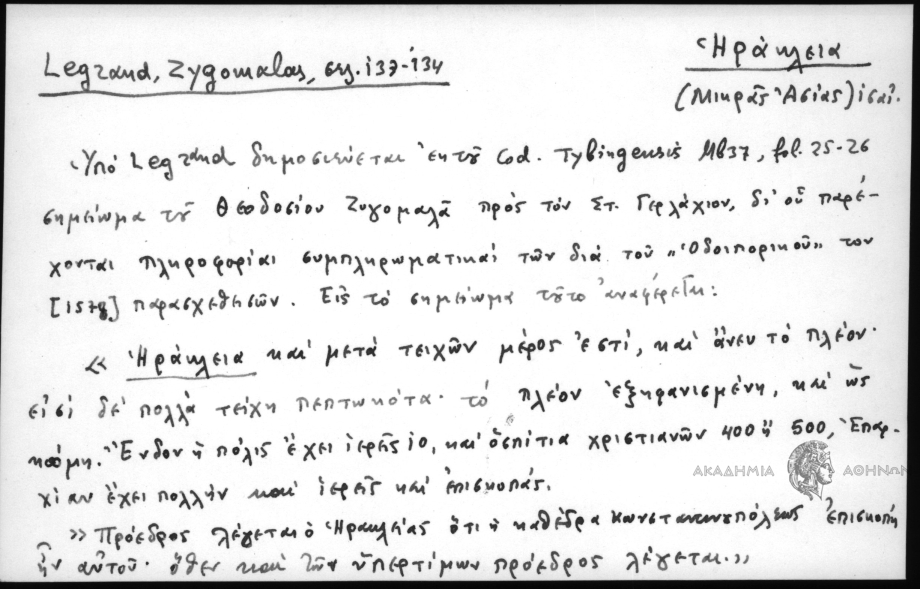 Ἡράκλεια
Legrand, Zygomalas, σελ. 133-134
(Μικρᾶς Ἀσίας)
Ὑπό Legrand δημοσιεύεται ἐκ τοῦ Cod. Tybingensis Mb37, fol. 25-26
σημείωμα τοῦ Θεοδοσίου Ζυγομαλᾶ πρός τόν Στ. Γερλάχιον, δι' οὗ παρέ-
χονται πληροφορίαι συμπληρωματικαί τῶν διά τοῦ „Ὁδοιπορικοῦ" του
[1578] παρασχεθεισῶν. Εἰς τό σημείωμα τοῦτο ἀναφέρεται:
« Ἡράκλεια καί μετά τειχῶν μέρος ἐστί, καί ἄνευ τό πλέον·
εἰσί δέ πολλά τείχη πεπτωκότα· τό πλέον ἐξηφανισμένη, καί ὡς
κώμη. Ἔνδον ἡ πόλις ἔχει ἱερεῖς 10, καί ὁσπίτια χριστιανῶν 400 ἤ 500, Ἐπαρ-
χίαν ἔχει πολλήν καί ἱερεῖς καί ἐπισκοπάς.
» Πρόεδρος λέγεται ὁ Ἡρακλείας ὅτι ἡ καθέδρα Κωνσταντινουπόλεως ἐπισκοπή
ἦν αὐτοῦ· ὅθεν καί τῶν ὑπερτίμων πρόεδρος λέγεται.»
ΑΚΑΔΗΜΙΑ ΑΘΗΝΩΝ